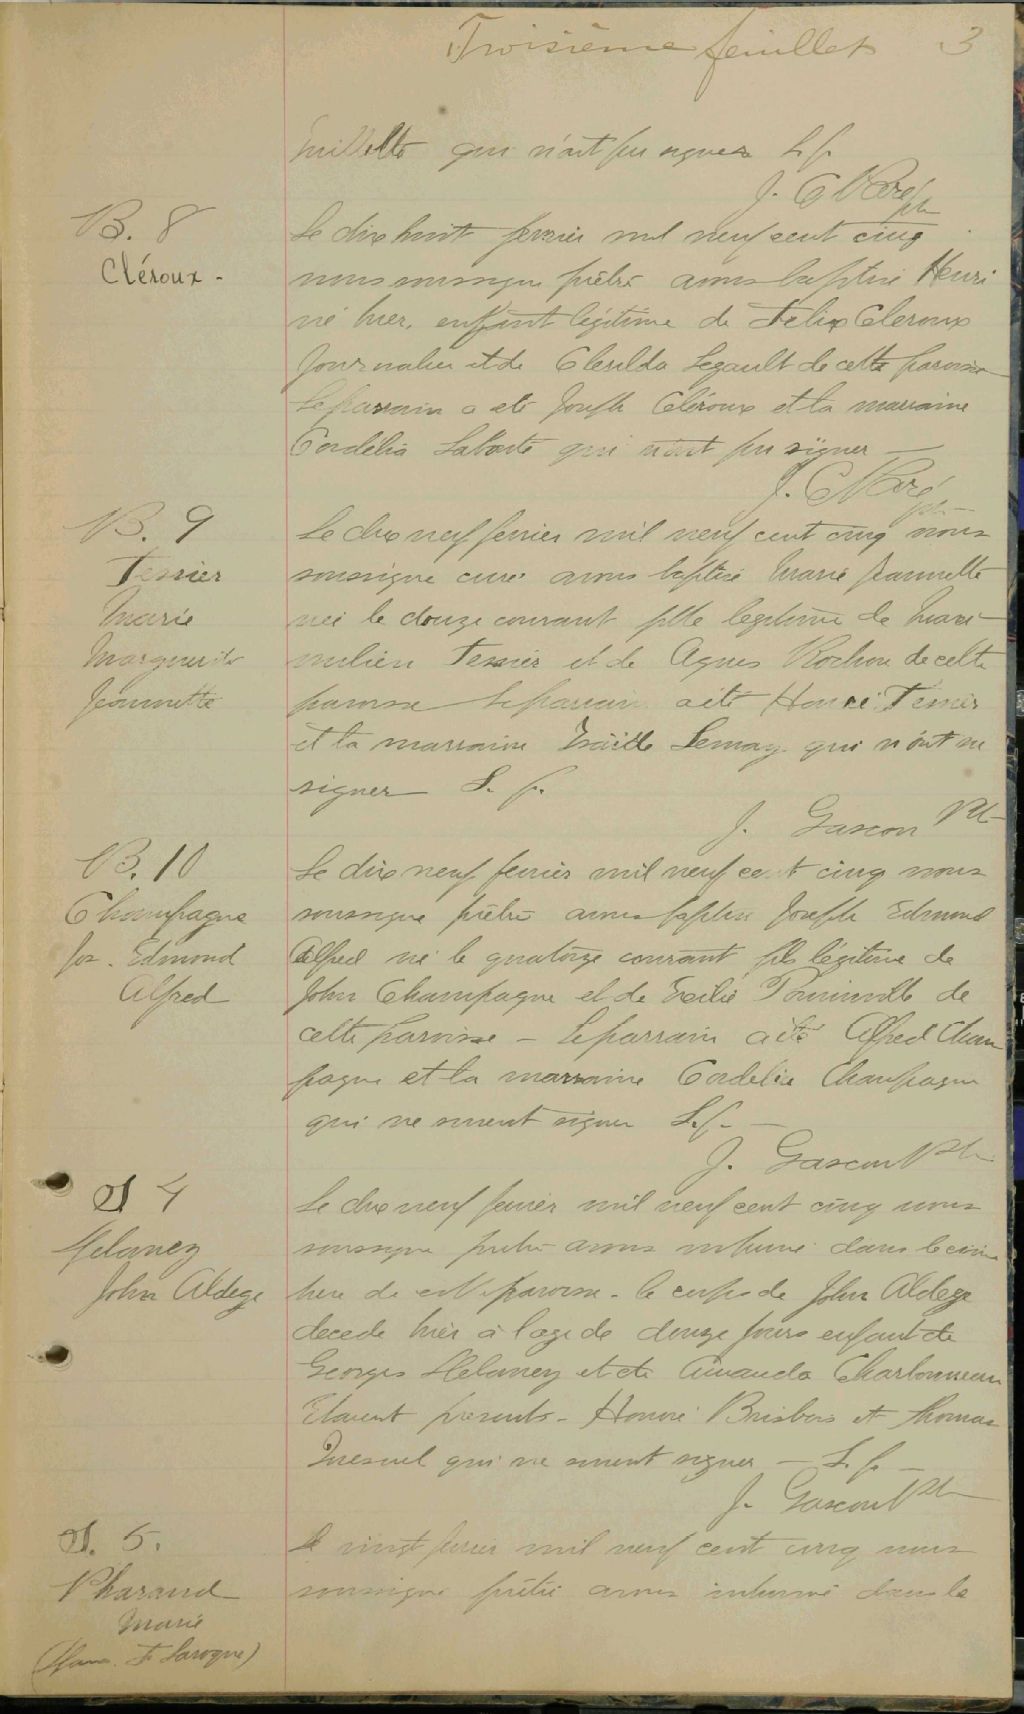 Troisième feuillet 3
qui n'ont pu signer L. f.
J. C Moré ptr
B. 8
Cléroux -
Le dix huit fevrier mil neuf cent cinq
nous soussigne prêtre avons baptisé Henri
né hier, enfant légitime de Felix Cleroux
Journalier et de Clerilda Legault de cette paroisse
Le parrain a ete Joseph Cléroux et la marraine
Cordélia qui n'ont pu signer
J. C Moré ptr
B. 9
Tessier
Marie
Marguerite
Jeannette
Le dix neuf fevrier mil neuf cent cinq nous
soussigne curé avons baptisé Marie Jeannette
née le douze courant fille legitime de Maxi-
milien Tessier et de Agnes Rochon de cette
paroisse Le parrain a été Henri Tessier
et la marraine Lemay qui n'ont su
signer L. f.
J. Gascon Ptr
B. 10
Champagne
Jos. Edmond
Alfred
Le dix neuf fevrier mil neuf cent cinq nous
soussigne prêtre avons baptisé Joseph Edmond
Alfred né le quatorze courant fils légitime de
John Champagne et de de
cette paroisse - Le parrain a été Alfred Cham
pagne et la marraine Cordelia Champagne
qui ne surent signer L. f. -
J. Gascon Ptr
S 4
Melancy
John Aldege
Le dix neuf fevrier mil neuf cent cinq nous
soussigne pretre avons inhumé dans le cime
tiere de cette paroisse - le corps de John Aldege
decede hier à l'age de douze jours enfant de
Georges et de Amanda Charbonneau
Etaient presents - Honoré Brisbois et Thomas
qui ne surent signer - L. f. -
J. Gascon Ptr
S. 5.
Pharand
Marie
(Dame F. Laroque)
Le vingt fevrier mil neuf cent cinq nous
soussigne prêtre avons inhumé dans le